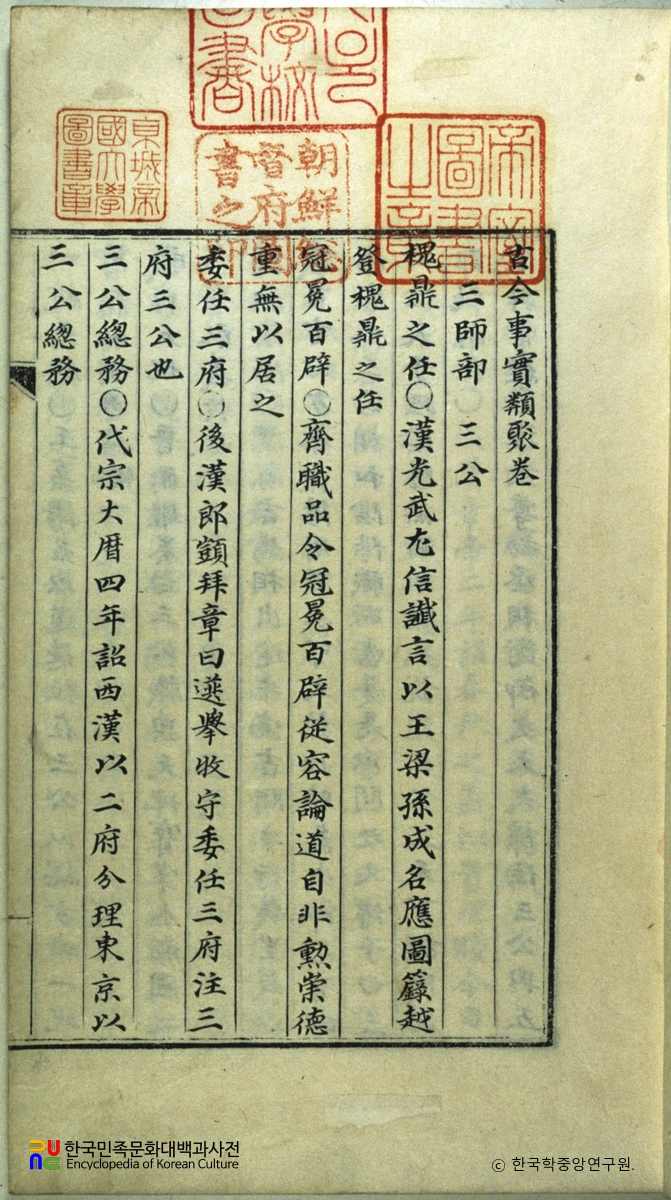 帝室
圖書
之章
朝鮮總
督府圖
書之印
京城帝
國大學
圖書章
古今事實類聚卷
三師部 三公
槐鼎之任〇漢光武尤信讖言以王梁孫成名應圖籙越
登槐鼎之任
冠冕百辟〇齊職品令冠冕百辟従容論道自非勲崇德
重無以居之
委任三府〇後漢郎顗拜章曰選舉收守委任三府注三
府三公也
三公總務〇代宗大曆四年詔西漢以二府分理東京以
三公總務
한국민족문화대백과사전
Encyclopedia of Korean Culture
ⓒ 한국학중앙연구원.